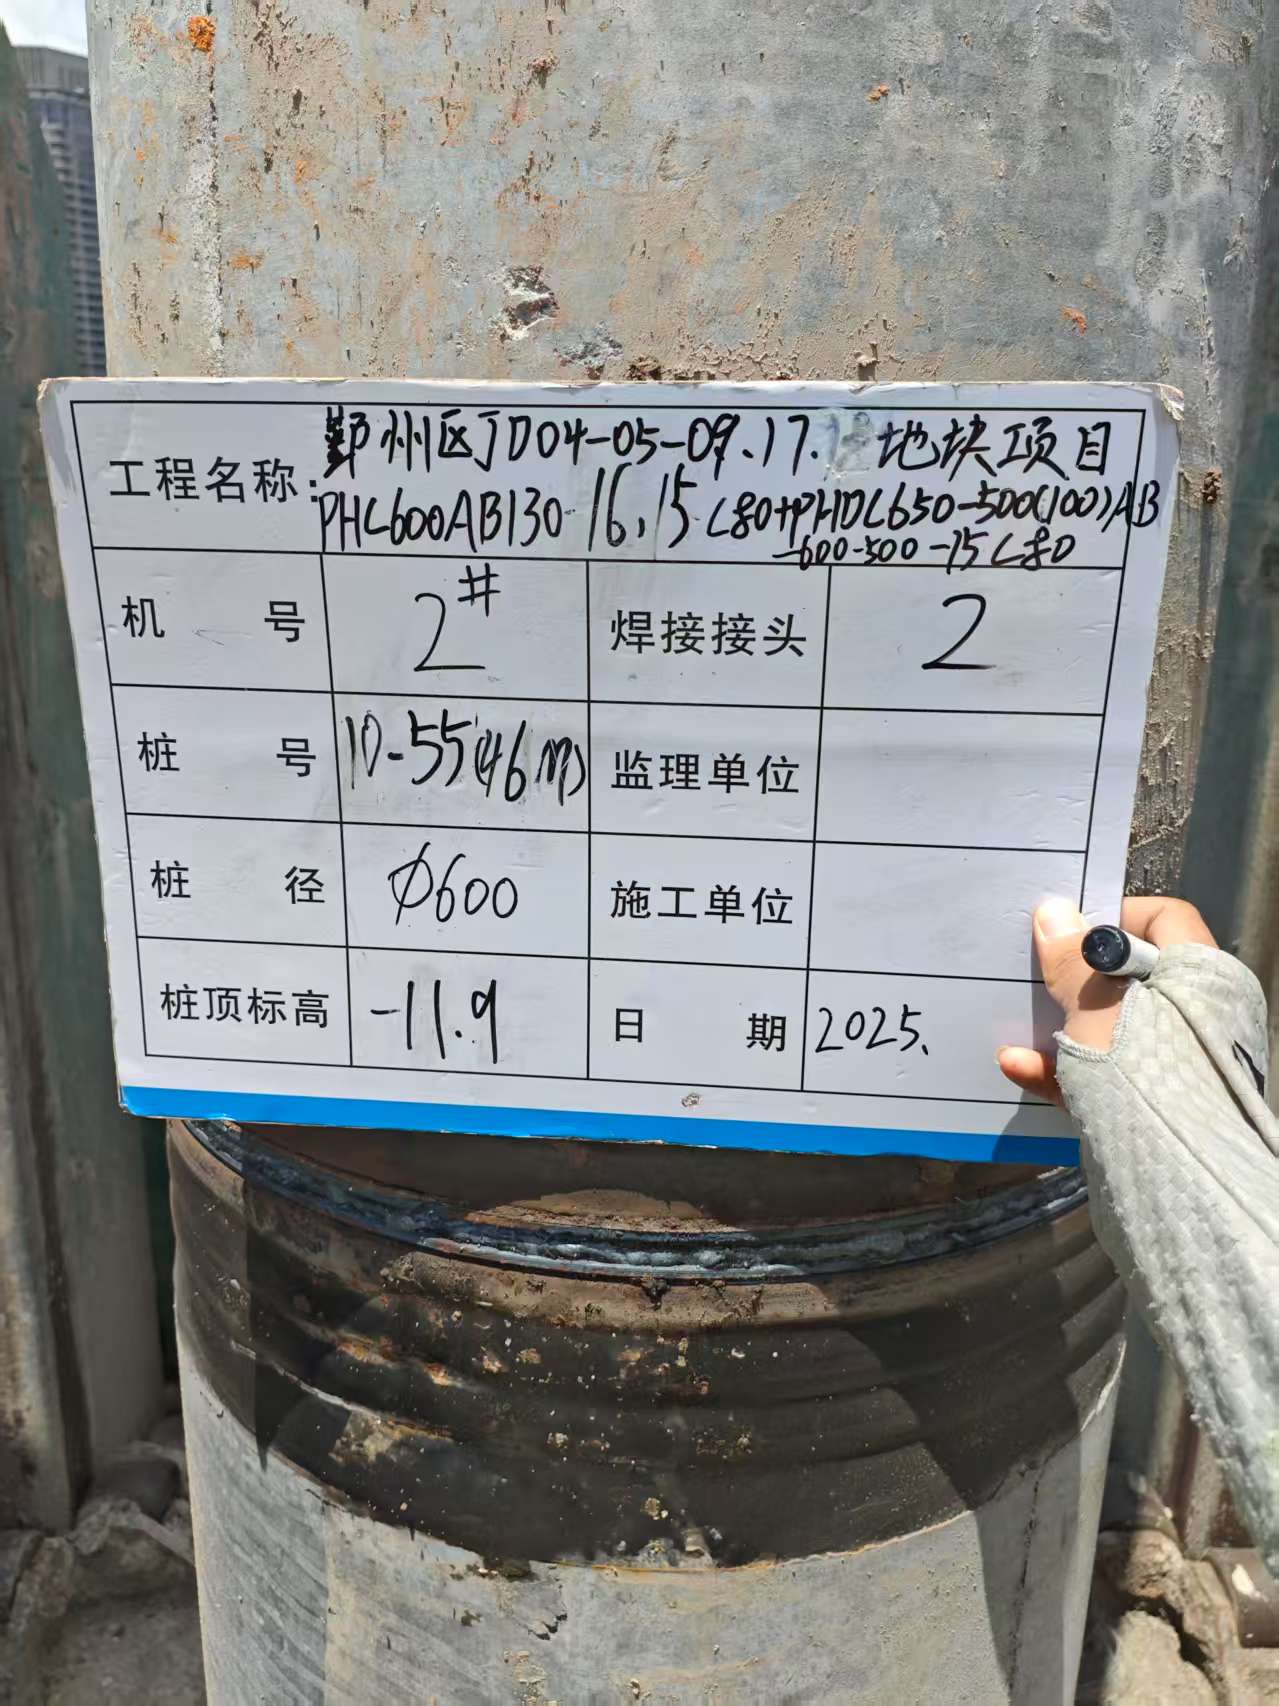 工程名称: 鄞州区JD04-05-09.17. 地块项目
PHC600AB130-16,15 C80+PHDC650-500(100)AB
-600-500-15 C80
机 号 2# 焊接接头 2
桩 号 10-55(46m) 监理单位
桩 径 Ø600 施工单位
桩顶标高 -11.9 日 期 2025.